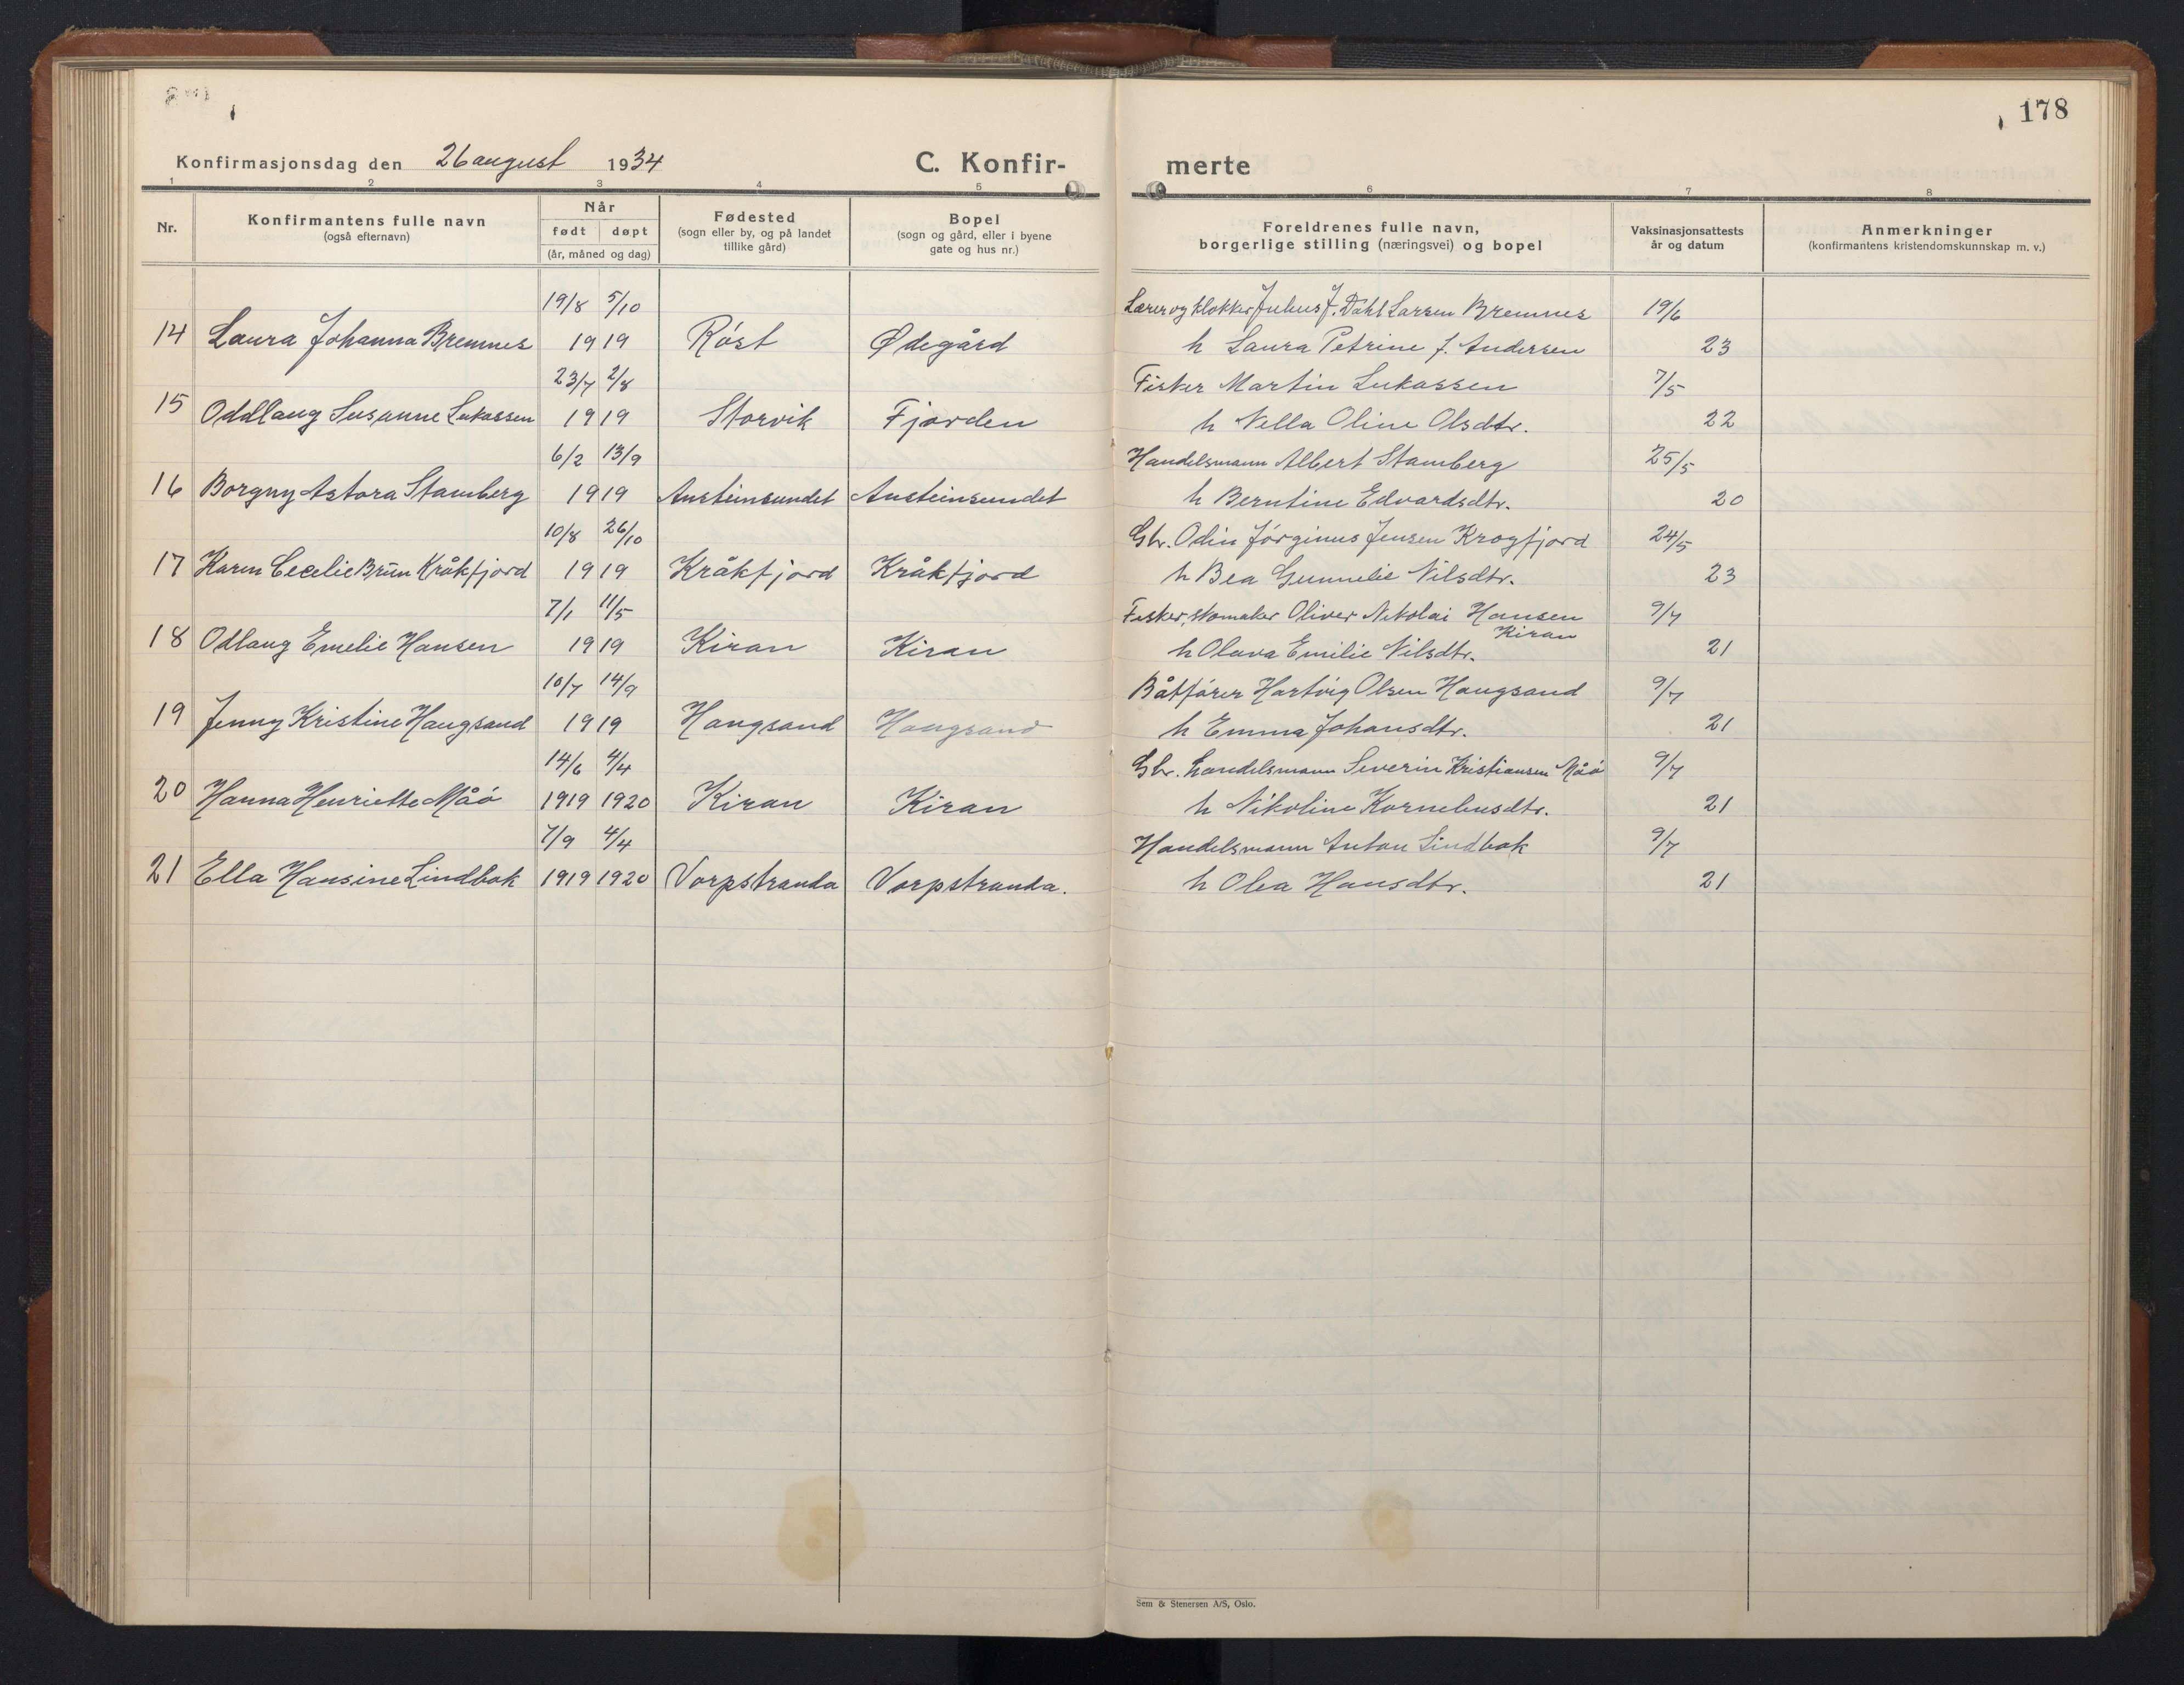 178
Konfirmasjonsdag den 26 august 1934
C. Konfir-
merte
1 2 3 4 5 6 7 8
Nr.
Konfirmantens fulle navn
(også efternavn)
Når
født døpt
(år, måned og dag)
Fødested
(sogn eller by, og på landet
tillike gård)
Bopel
(sogn og gård, eller i byene
gate og hus nr.)
Foreldrenes fulle navn,
borgerlige stilling (næringsvei) og bopel
Vaksinasjonsattests
år og datum
Anmerkninger
(konfirmantens kristendomskunnskap m. v.)
19/8 5/10 Lærer og klokker Julius J. Dahl Larsen Bremnes 19/6
14 Laura Johanna Bremnes 1919 Røst Ødegård h Laura Petrine J. Andersen 23
23/7 2/8 Fisker Martin Lukassen 7/5
15 Oddlaug Susanne Lukassen 1919 Storvik Fjorden h Nella Oline Olsdtr. 22
6/2 13/9 Handelsmann Albert Stamberg 25/5
16 Borgny Astora Stamberg 1919 Austeinsundet Austeinsundet h Berntine Edvardsdtr. 20
10/8 26/10 Gbr. Odin Jørginus Jensen Krogfjord 24/5
17 Karen Cecelie Brun Kråkfjord 1919 Kråkfjord Kråkfjord h Bea Gunnelie Nilsdtr. 23
7/1 11/5 Fisker, skomaker Oliver Nikolai Hansen 9/7
Kiran
18 Odlaug Emelie Hansen 1919 Kiran Kiran h Olava Emilie Nilsdtr. 21
10/7 14/9 Båtfører Hartvig Olsen Haugsand 9/7
19 Jenny Kristine Haugsand 1919 Haugsand Haugsand h Emma Johansdtr. 21
14/6 4/4 Gbr. handelsmann Severin Kristiansen Måø 9/7
20 Hanna Henriette Måø 1919 1920 Kiran Kiran h Nikoline Korneliusdtr. 21
7/9 4/4 Handelsmann Anton Lindbak 9/7
21 Ella Hansine Lindbak 1919 1920 Vorpstranda Vorpstranda. h Olea Hansdtr. 21
Sem & Stenersen A/S, Oslo.